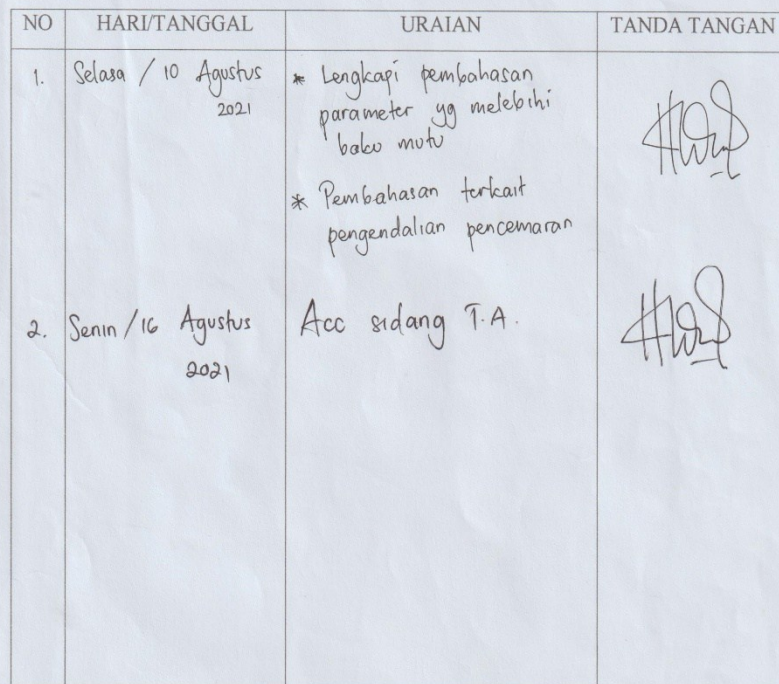 NO HARI/TANGGAL URAIAN TANDA TANGAN
1. Selasa / 10 Agustus
2021
* Lengkapi pembahasan
parameter yg melebihi
baku mutu
* Pembahasan terkait
pengendalian pencemaran
2. Senin / 16 Agustus
2021
Acc sidang T.A.